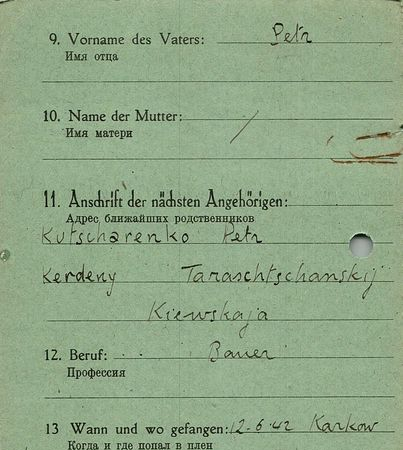 9. Vorname des Vaters: Petr
Имя отца
10. Name der Mutter: /
Имя матери
11. Anschrift der nächsten Angehörigen:
Адрес ближайших родственников
Kutscharenko Petr
Kerdeny Taraschtschanskij
Kiewskaja
12. Beruf: Bauer
Профессия
13 Wann und wo gefangen: 12.6.42 Karkow
Когда и где попал в плен